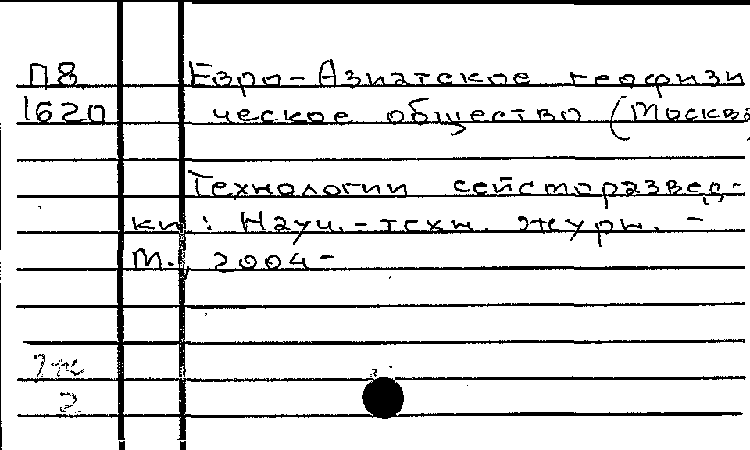 П8 Евро-Азиатское геофизи
1620 ческое общество (Москва
Технологии сейсморазвед-
ки: Науч.-техн. журн. -
М., 2004-
2